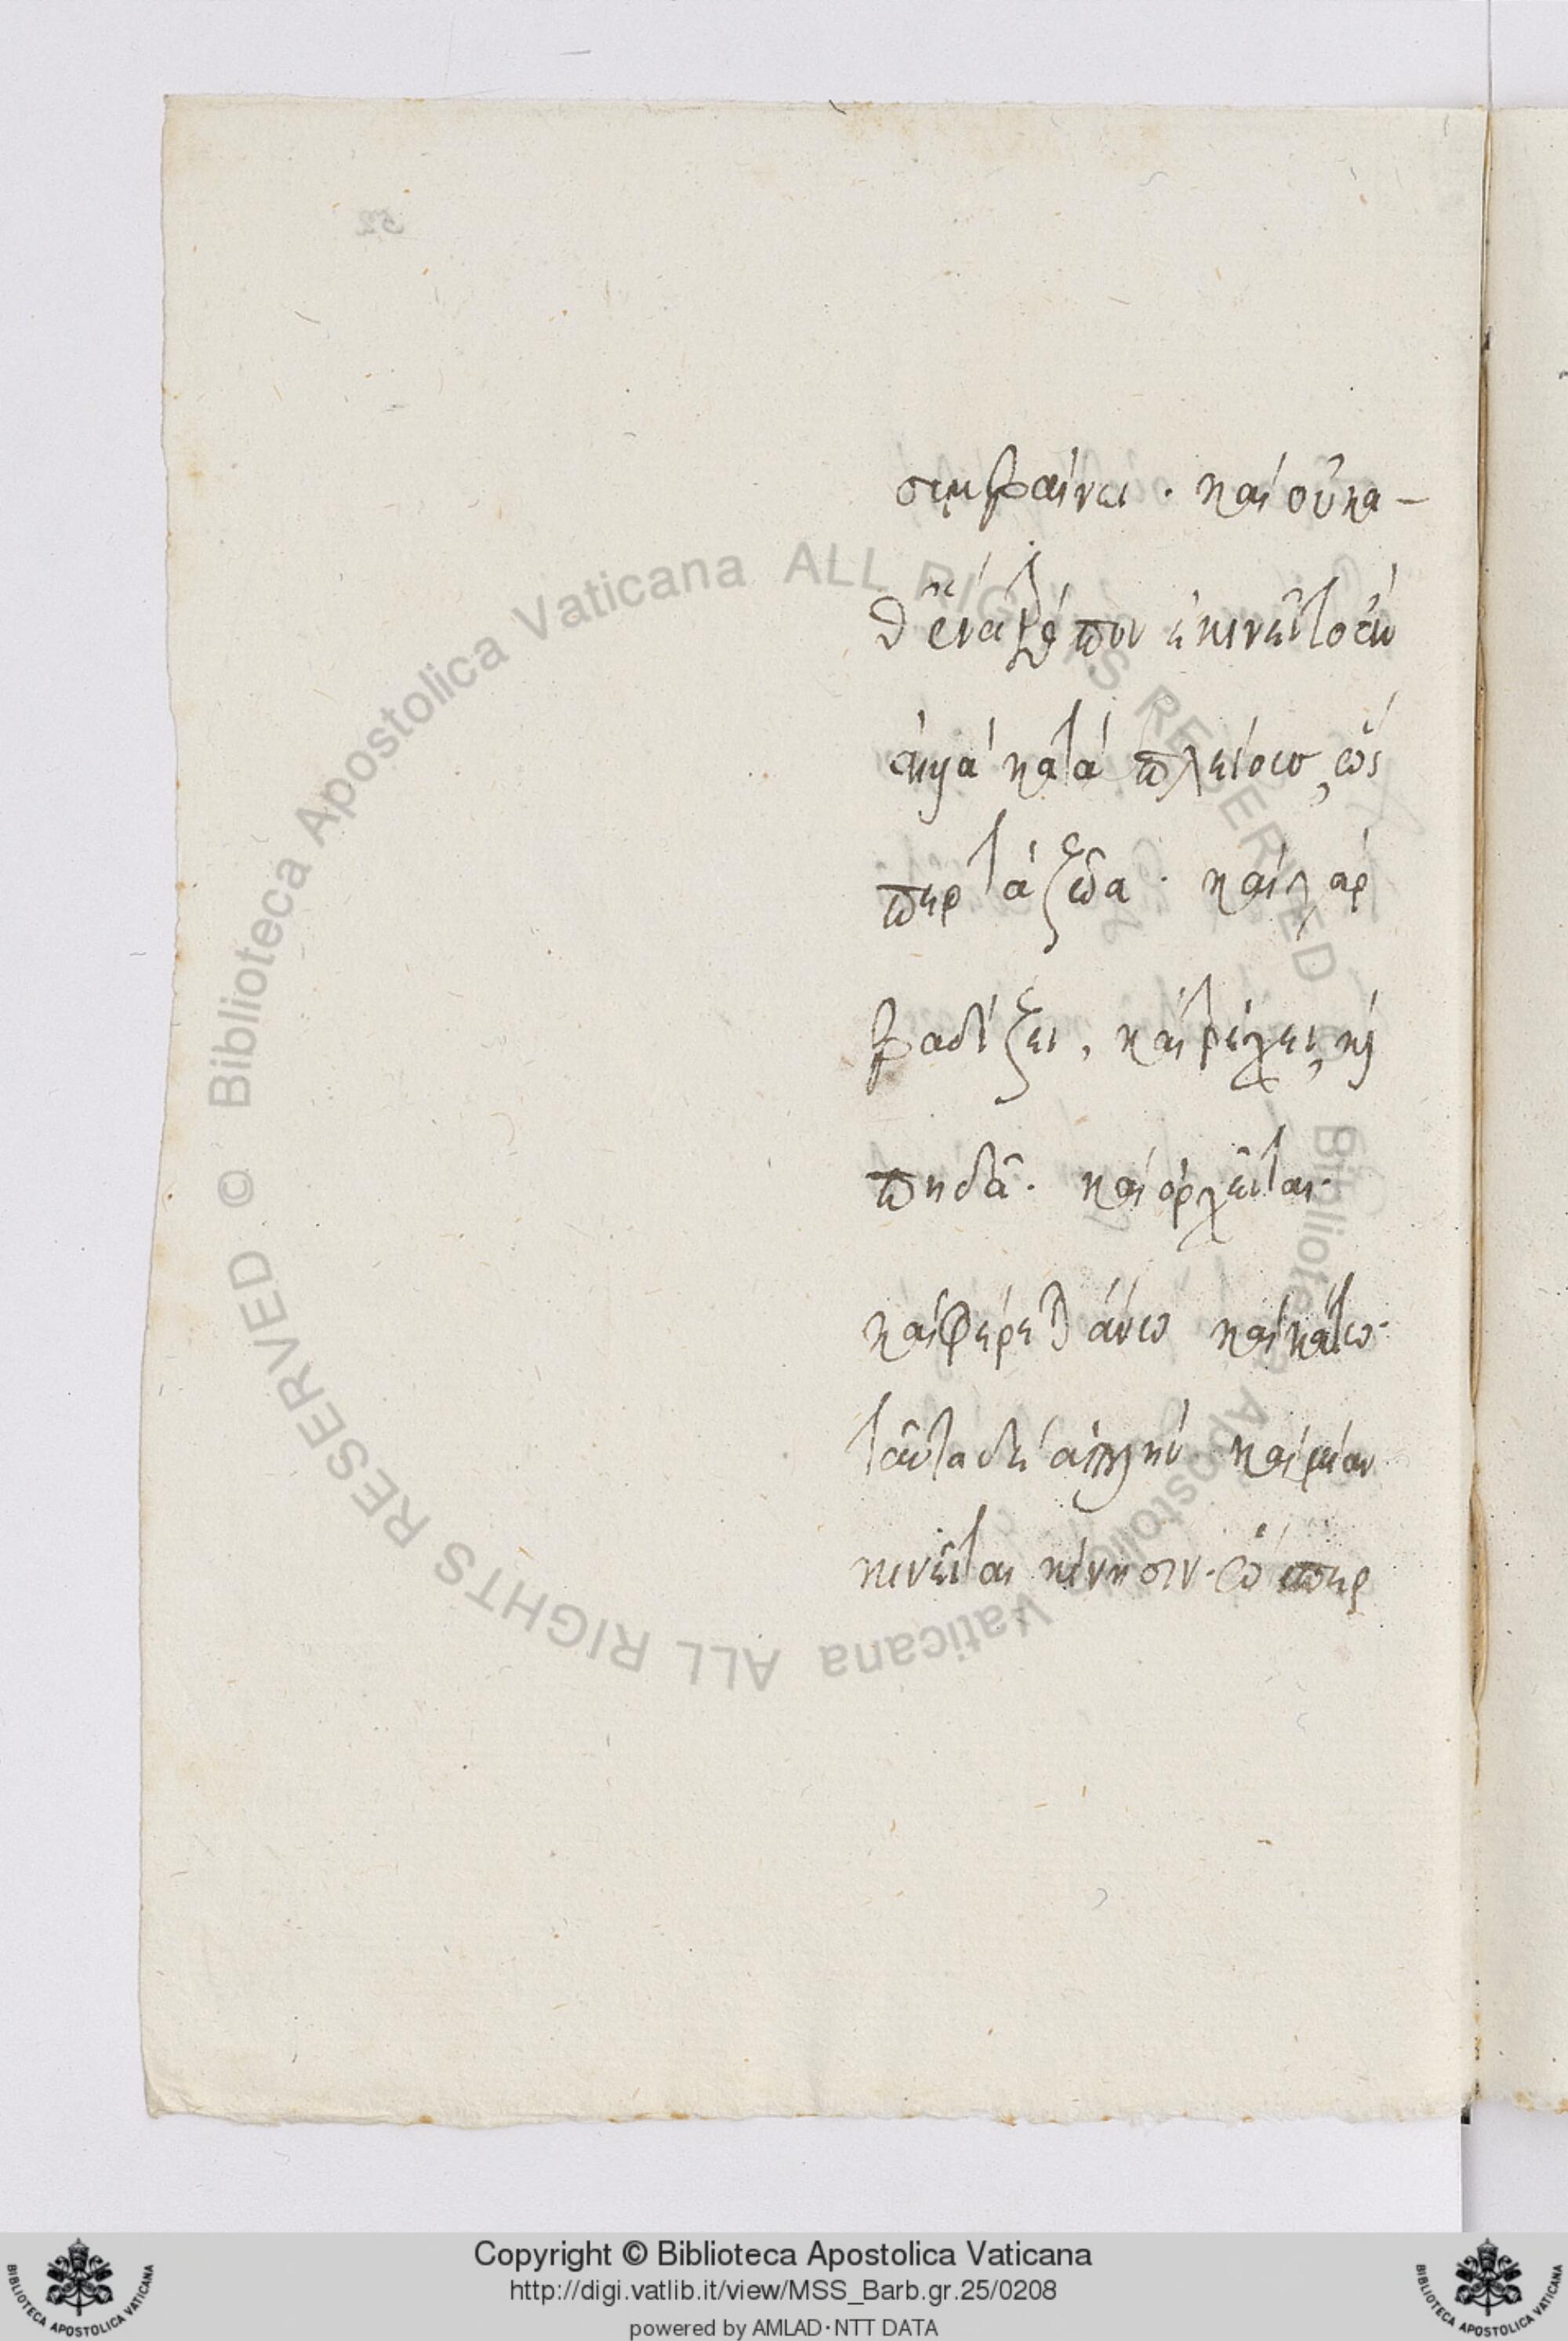 συμβαίνει · καὶ οὐ κα-
θ' ἕνα τρόπον ἐκινεῖτο ἂν
ἀλλὰ κατὰ πλείους, ὥς
περ τὰ ζῶα · καὶ γὰρ
βαδίζει, καὶ τρέχει, κ
πηδᾶ · καὶ ὀρχεῖται ·
καὶ φέρεται ἄνω καὶ κάτω ·
ταῦτα δὲ ἁπλῆν καὶ μίαν
κινεῖται κίνησιν · ὥσπερ
52
Biblioteca Apostolica Vaticana ALL RIGHTS RESERVED © Biblioteca Apostolica Vaticana ALL RIGHTS RESERVED ©
Copyright © Biblioteca Apostolica Vaticana
http://digi.vatlib.it/view/MSS_Barb.gr.25/0208
powered by AMLAD·NTT DATA
BIBLIOTECA APOSTOLICA VATICANA
BIBLIOTECA APOSTOLICA VATICANA